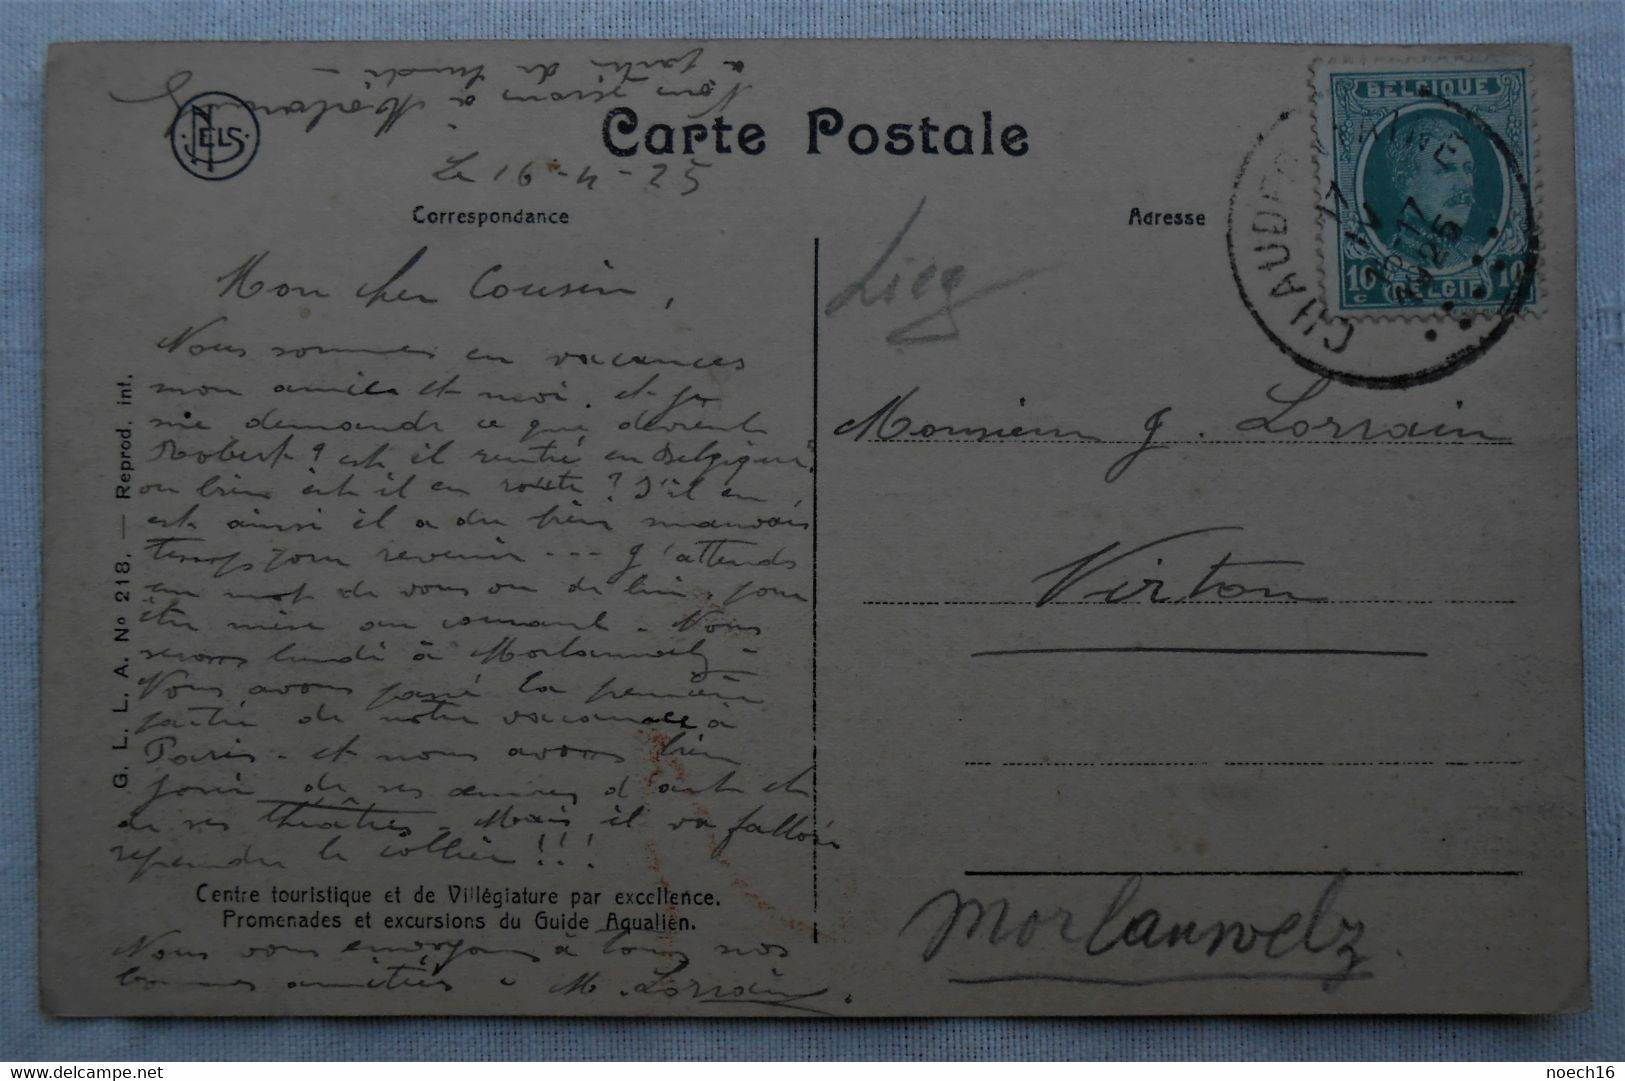 Nous serons à Morlanwelz
à partir de lundi -
NELS
Carte Postale
Le 16-4-25
Correspondance
Adresse
BELGIQUE
10 c
BELGIË
10 c
CHAUDFONTAINE
17 IV
16-17
1925
Mon cher Cousin,
Nous sommes en vacances
mon amie et moi. et je
me demande ce que devient
Robert ? est il rentré en Belgique,
ou bien est il en route ? S'il en
est ainsi il a du bien mauvais
temps pour revenir --- J'attends
un mot de vous ou de lui, pour
être mise au courant. Nous
serons lundi à Morlanwelz -
Nous avons passé la première
partie de notre vacances à
Paris - et nous avons bien
joui de ses œuvres d'art et
de ses théâtres. Mais il va falloir
reprendre le collier !!!
Centre touristique et de Villégiature par excellence.
Promenades et excursions du Guide Aqualien.
Nous vous envoyons à tous nos
bonnes amitiés - M. Lorrain.
G. L. L. A. No 218. — Reprod. int.
Lieg
Monsieur J. Lorrain
Virton
Morlanwelz.
noech16